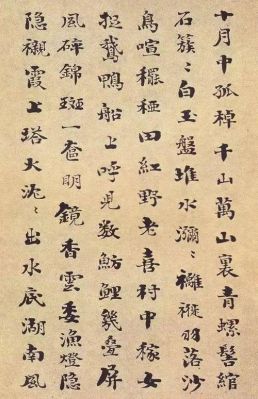 十月中孤棹千山萬山裏青螺髻綰
石簇〻白玉盤堆水瀰〻離褷羽落沙
鳥喧穲稏田紅野老喜村中稼女
招鵞鴨船上呼児数魴鯉幾疊屏
風碎錦斑一奩明鏡香雲委漁燈隐
隐襯霞上塔火〻出水底湖南風